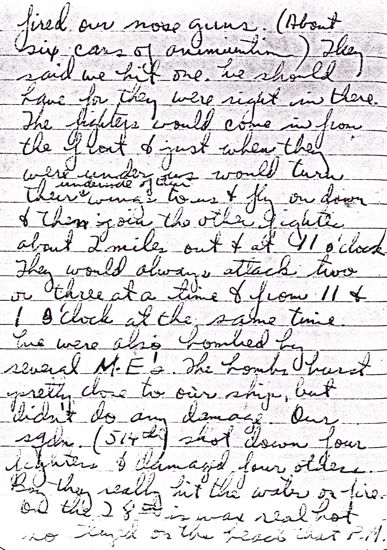 fired our nose guns. (About
six cans of ammunition) They
said we hit one. We should
have for they were right in there.
The fighters would come in from
the front & just when they
were under us would turn
underside of their
their wings to us & fly on down
& then join the other fighter
about 2 miles out & at 11 o'clock
They would always attack two
or three at a time & from 11 &
1 O'clock at the same time.
We were also bombed by
several M-E's. The bombs burst
pretty close to our ship, but
didn't do any damage. Our
sqdn. (514th) shot down four
fighters & damaged four others.
Boy they really hit the water on fire.
On the 28th it was real hot
so stayed on the beach that P.M.